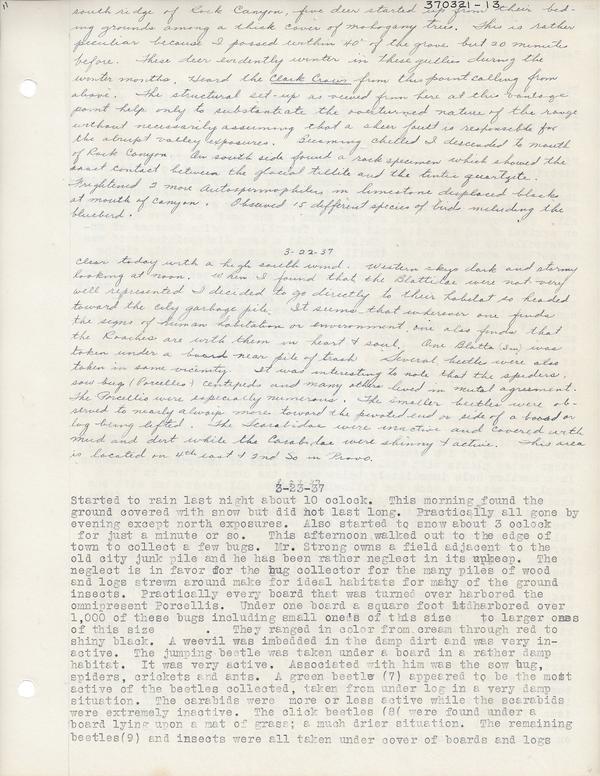 370321-13
south ridge of Rock Canyon, five deer started up from their bed-
ing grounds among a thick cover of mahogany trees. This is rather
peculiar because I passed within 40' of the grove but 20 minutes
before. These deer evidently winter in these gullies during the
winter months. Heard the Clark Crow from this point calling from
above. The structural set-up as viewed from here at this vantage
point help only to substantiate the overturned nature of the range
without necessarily assuming that a sheer fault is responsible for
the abrupt valley exposures. Becoming chilled I descended to mouth
of Rock Canyon. On south side found a rock specimen which showed the
exact contact between the glacial tillite and the tintic quartzite.
Frightened 2 more in limestone displaced blocks
at mouth of canyon. Observed 15 different species of birds including the
bluebird.
3-22-37
Clear today with a high south wind. Western skys dark and stormy
looking at noon. When I found that the Blattidae were not very
well represented I decided to go directly to their habitat so headed
toward the city garbage pile. It seems that wherever one finds
the signs of human habitation or environment, one also finds that
the Roaches are with them in heart & soul. One Blatta was
taken under a board near pile of trash. Several beetles were also
taken in same vicinity. It was interesting to note that the spiders,
sow bug (Porcellis) centipeds and many others lived in mutal agreement.
The Porcellis were especially numerous. The smaller beetles were ob-
served to nearly always more toward the pivoted end or side of a board or
log being lifted. The Scarabidae were inactive and covered with
mud and dirt while the Carabidae were shinny & active. This area
is located on 4th east & 2nd So in Provo.
3-23-37
Started to rain last night about 10 oclock. This morning found the
ground covered with snow but did not last long. Practically all gone by
evening except north exposures. Also started to snow about 3 oclock
for just a minute or so. This afternoon walked out to the edge of
town to collect a few bugs. Mr. Strong owns a field adjacent to the
old city junk pile and he has been rather neglect in its upkeep. The
neglect is in favor for the bug collector for the many piles of wood
and logs strewn around make for ideal habitats for many of the ground
insects. Practically every board that was turned over harbored the
omnipresent Porcellis. Under one board a square foot harbored over
1,000 of these bugs including small ones of this size to larger ones
of this size . They ranged in color from cream through red to
shiny black. A weevil was imbedded in the damp dirt and was very in-
active. The jumping beetle was taken under a board in a rather damp
habitat. It was very active. Associated with him was the sow bug,
spiders, crickets and ants. A green beetle (7) appeared to be the most
active of the beetles collected, taken from under log in a very damp
situation. The carabids were more or less active while the scarabids
were extremely inactive. The click beetles (8( were found under a
board lying upon a mat of grass; a much drier situation. The remaining
beetles(9) and insects were all taken under cover of boards and logs